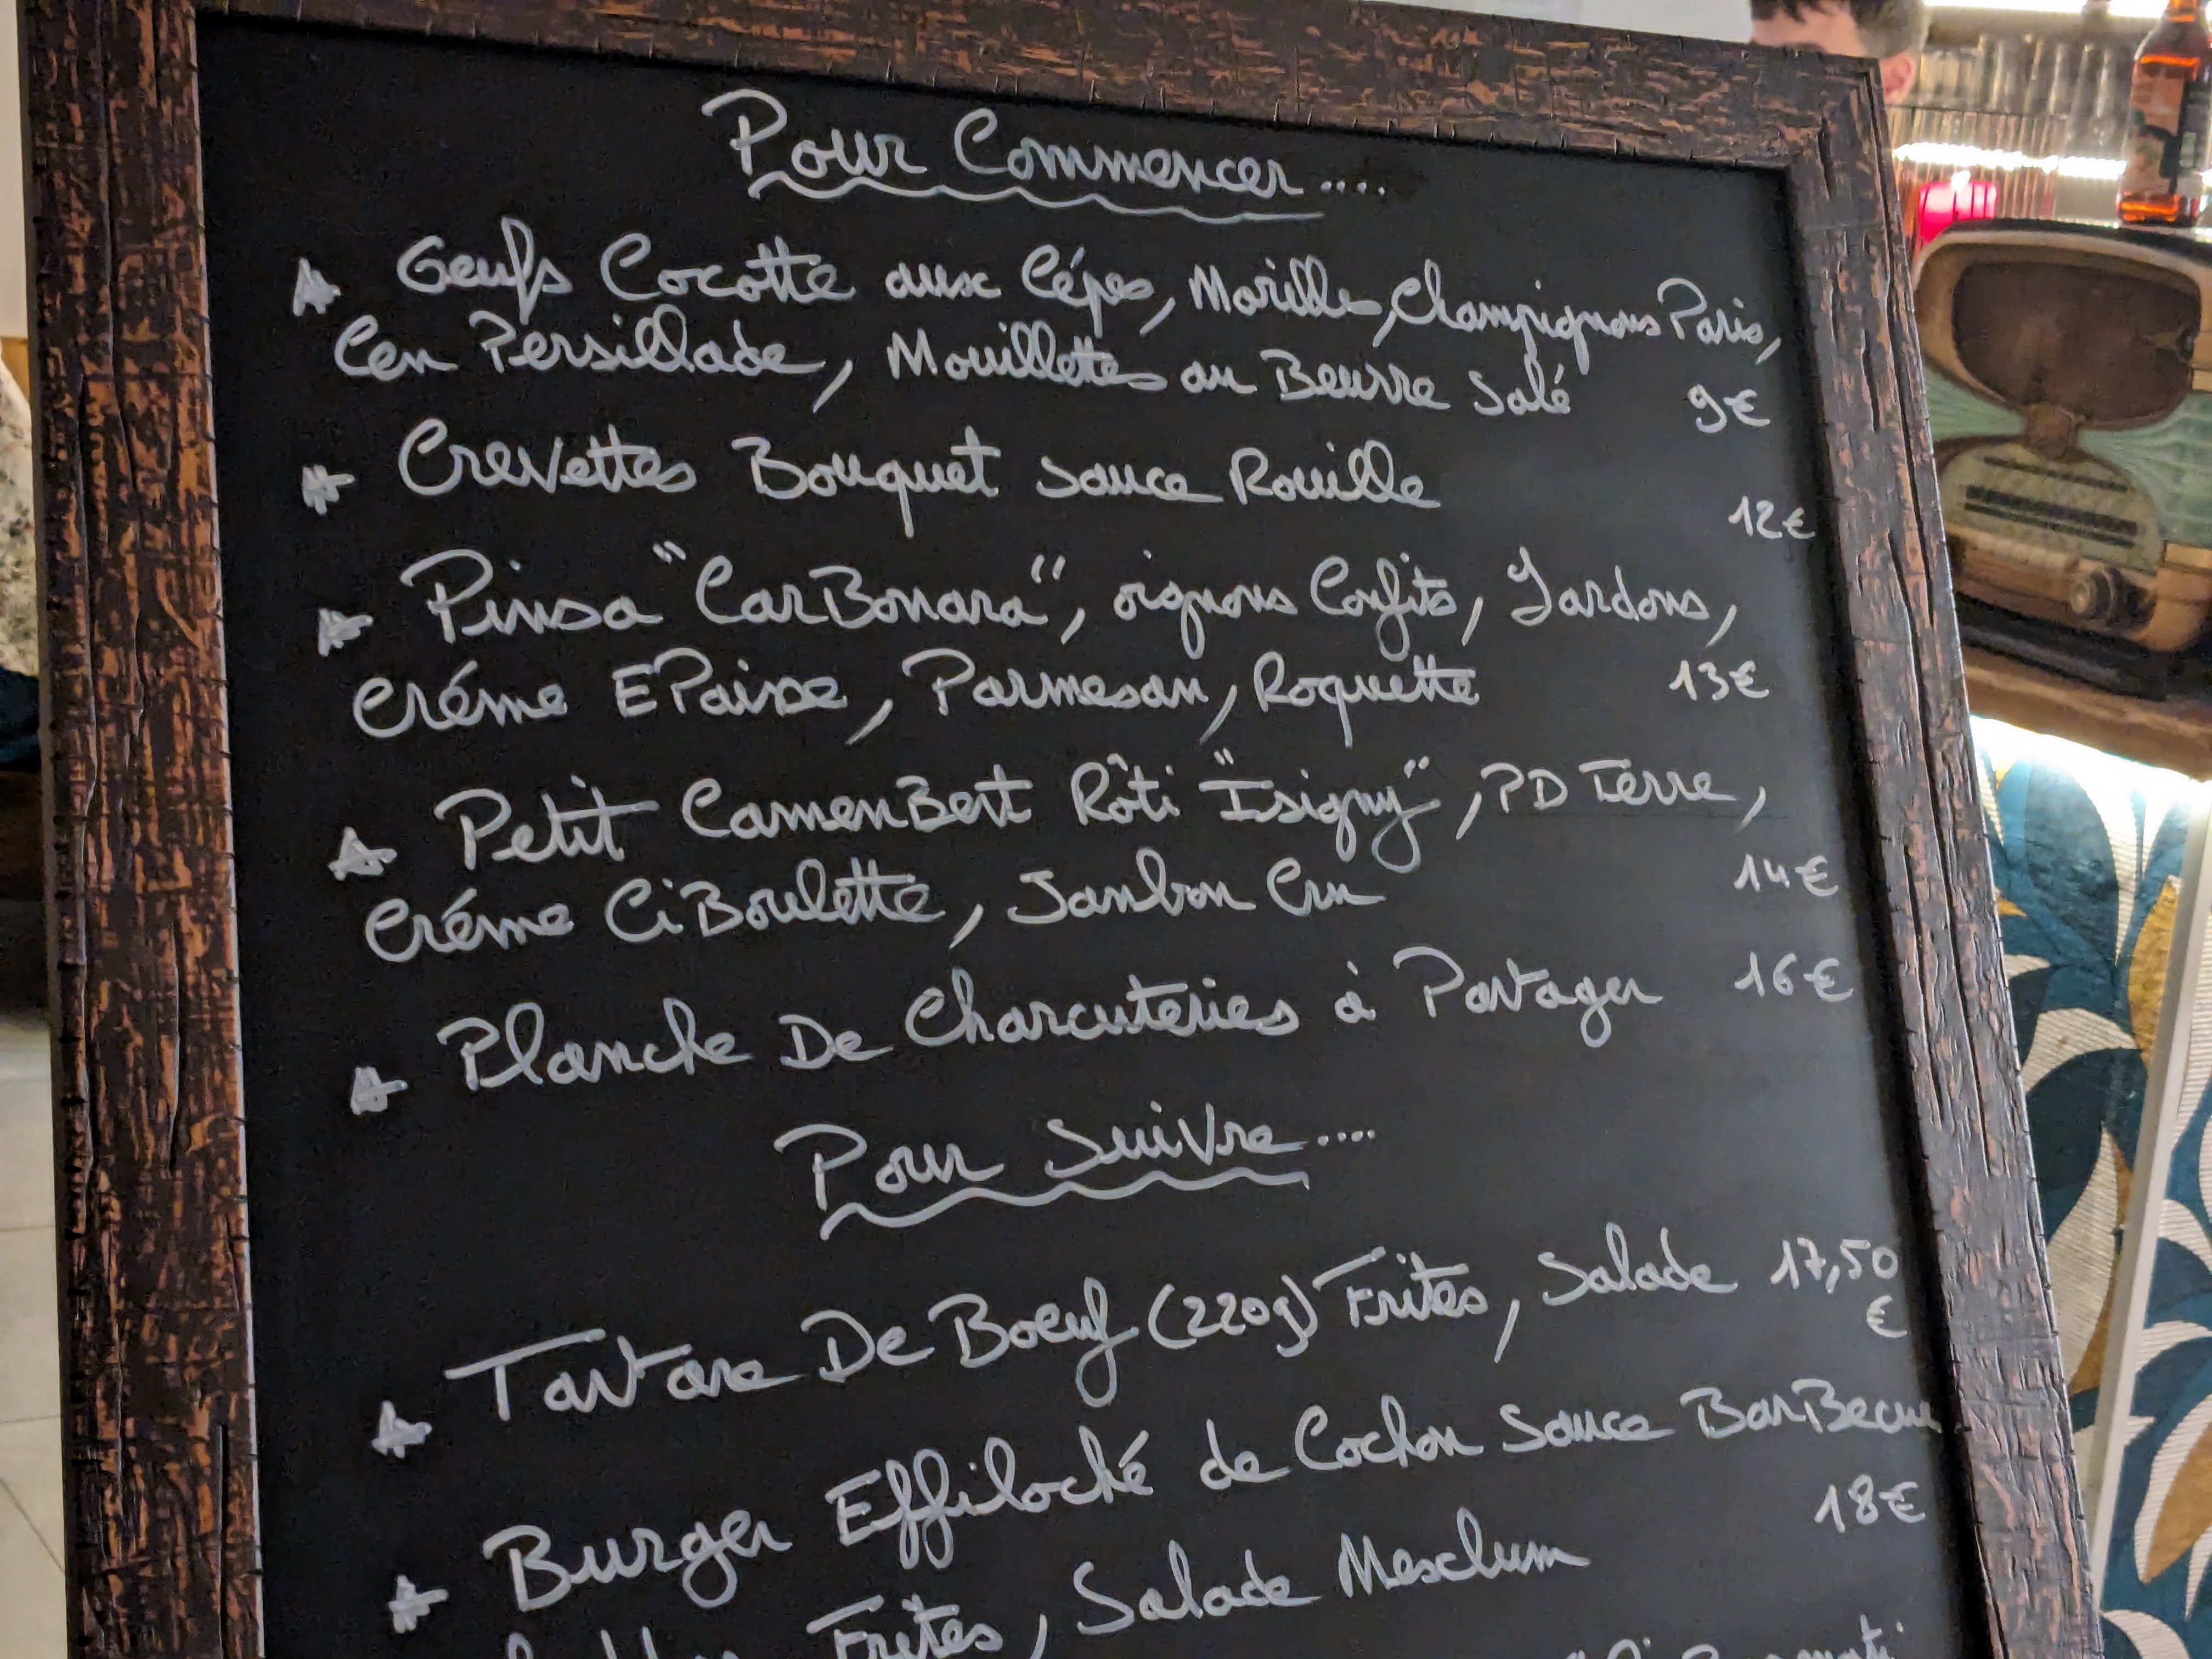 Pour Commencer....
Oeufs Cocotte aux Cépes, Morilles, Champignons Paris,
en Persillade, Mouillettes au Beurre Salé 9€
Crevettes Bouquet sauce Rouille
12€
Pinsa "CarBonara", oignons Confits, Lardons,
créme EPaisse, Parmesan, Roquette 13€
Petit CamenBert Rôti "Isigny", PD Terre,
créme CiBoulette, Jambon Cru 14€
Planche De Charcuteries à Partager 16€
Pour Suivre....
Tartare De Boeuf (220g) Frites, Salade 17,50
€
Burger Effiloché de Cochon Sauce BarBecue
18€
Frites, Salade Mesclum